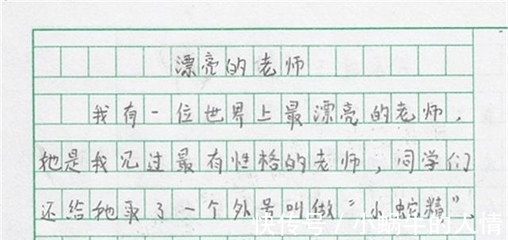 漂亮的老师
我有一位世界上最漂亮的老师，
她是我见过最有性格的老师，同学们
还给她取了一个外号叫做“小蛇精”
快传号/小蜗牛的人情